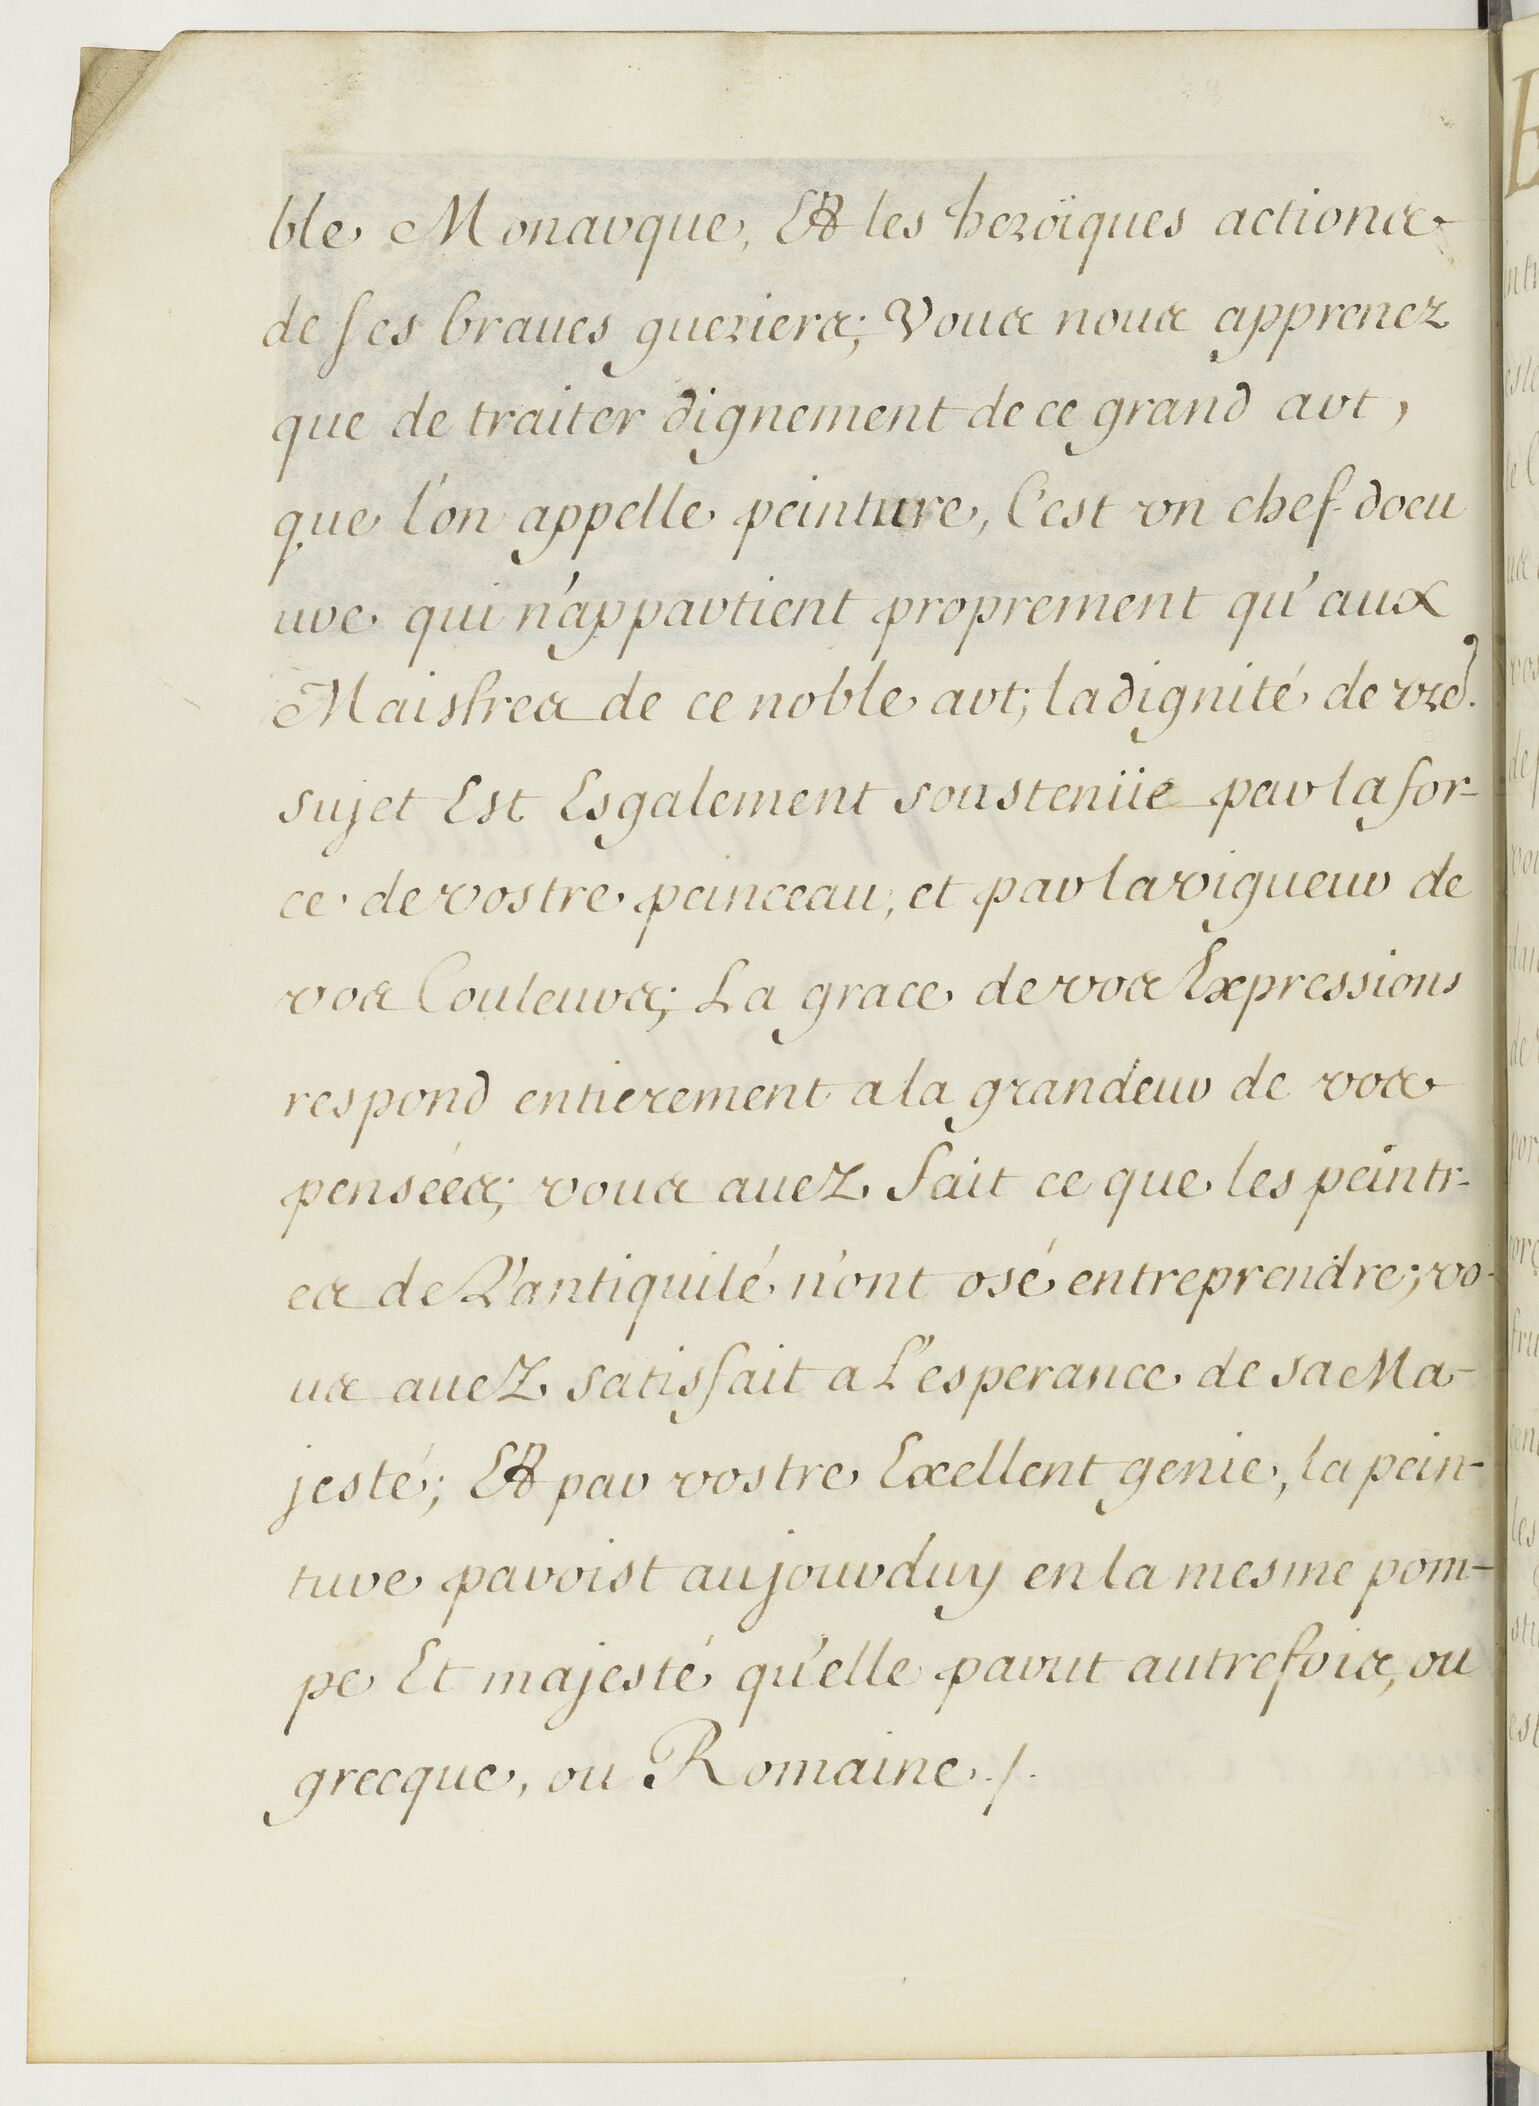 ble Monarque, Et les heroïques actions
de ses braues gueriers; Vous nous apprenez
que de traiter dignement de ce grand art,
que l'on appelle peinture, C'est vn chef-doeu
ure qui n'appartient proprement qu'aux
Maistres de ce noble art; la dignité de vre.
sujet Est Esgalement soustenüe par la for-
ce de vostre peinceau, et par la vigueur de
vos Couleurs; La grace de vos Expressions
respond entierement a la grandeur de vos
pensées; vous auez fait ce que les peintr-
es de L'antiquité n'ont osé entreprendre; vo-
us auez satisfait a L'esperance de sa Ma-
jesté; Et par vostre Exellent genie, la pein-
ture paroist aujourduy en la mesme pom-
pe Et majesté qu'elle parut autrefois, ou
grecque, ou Romaine./.